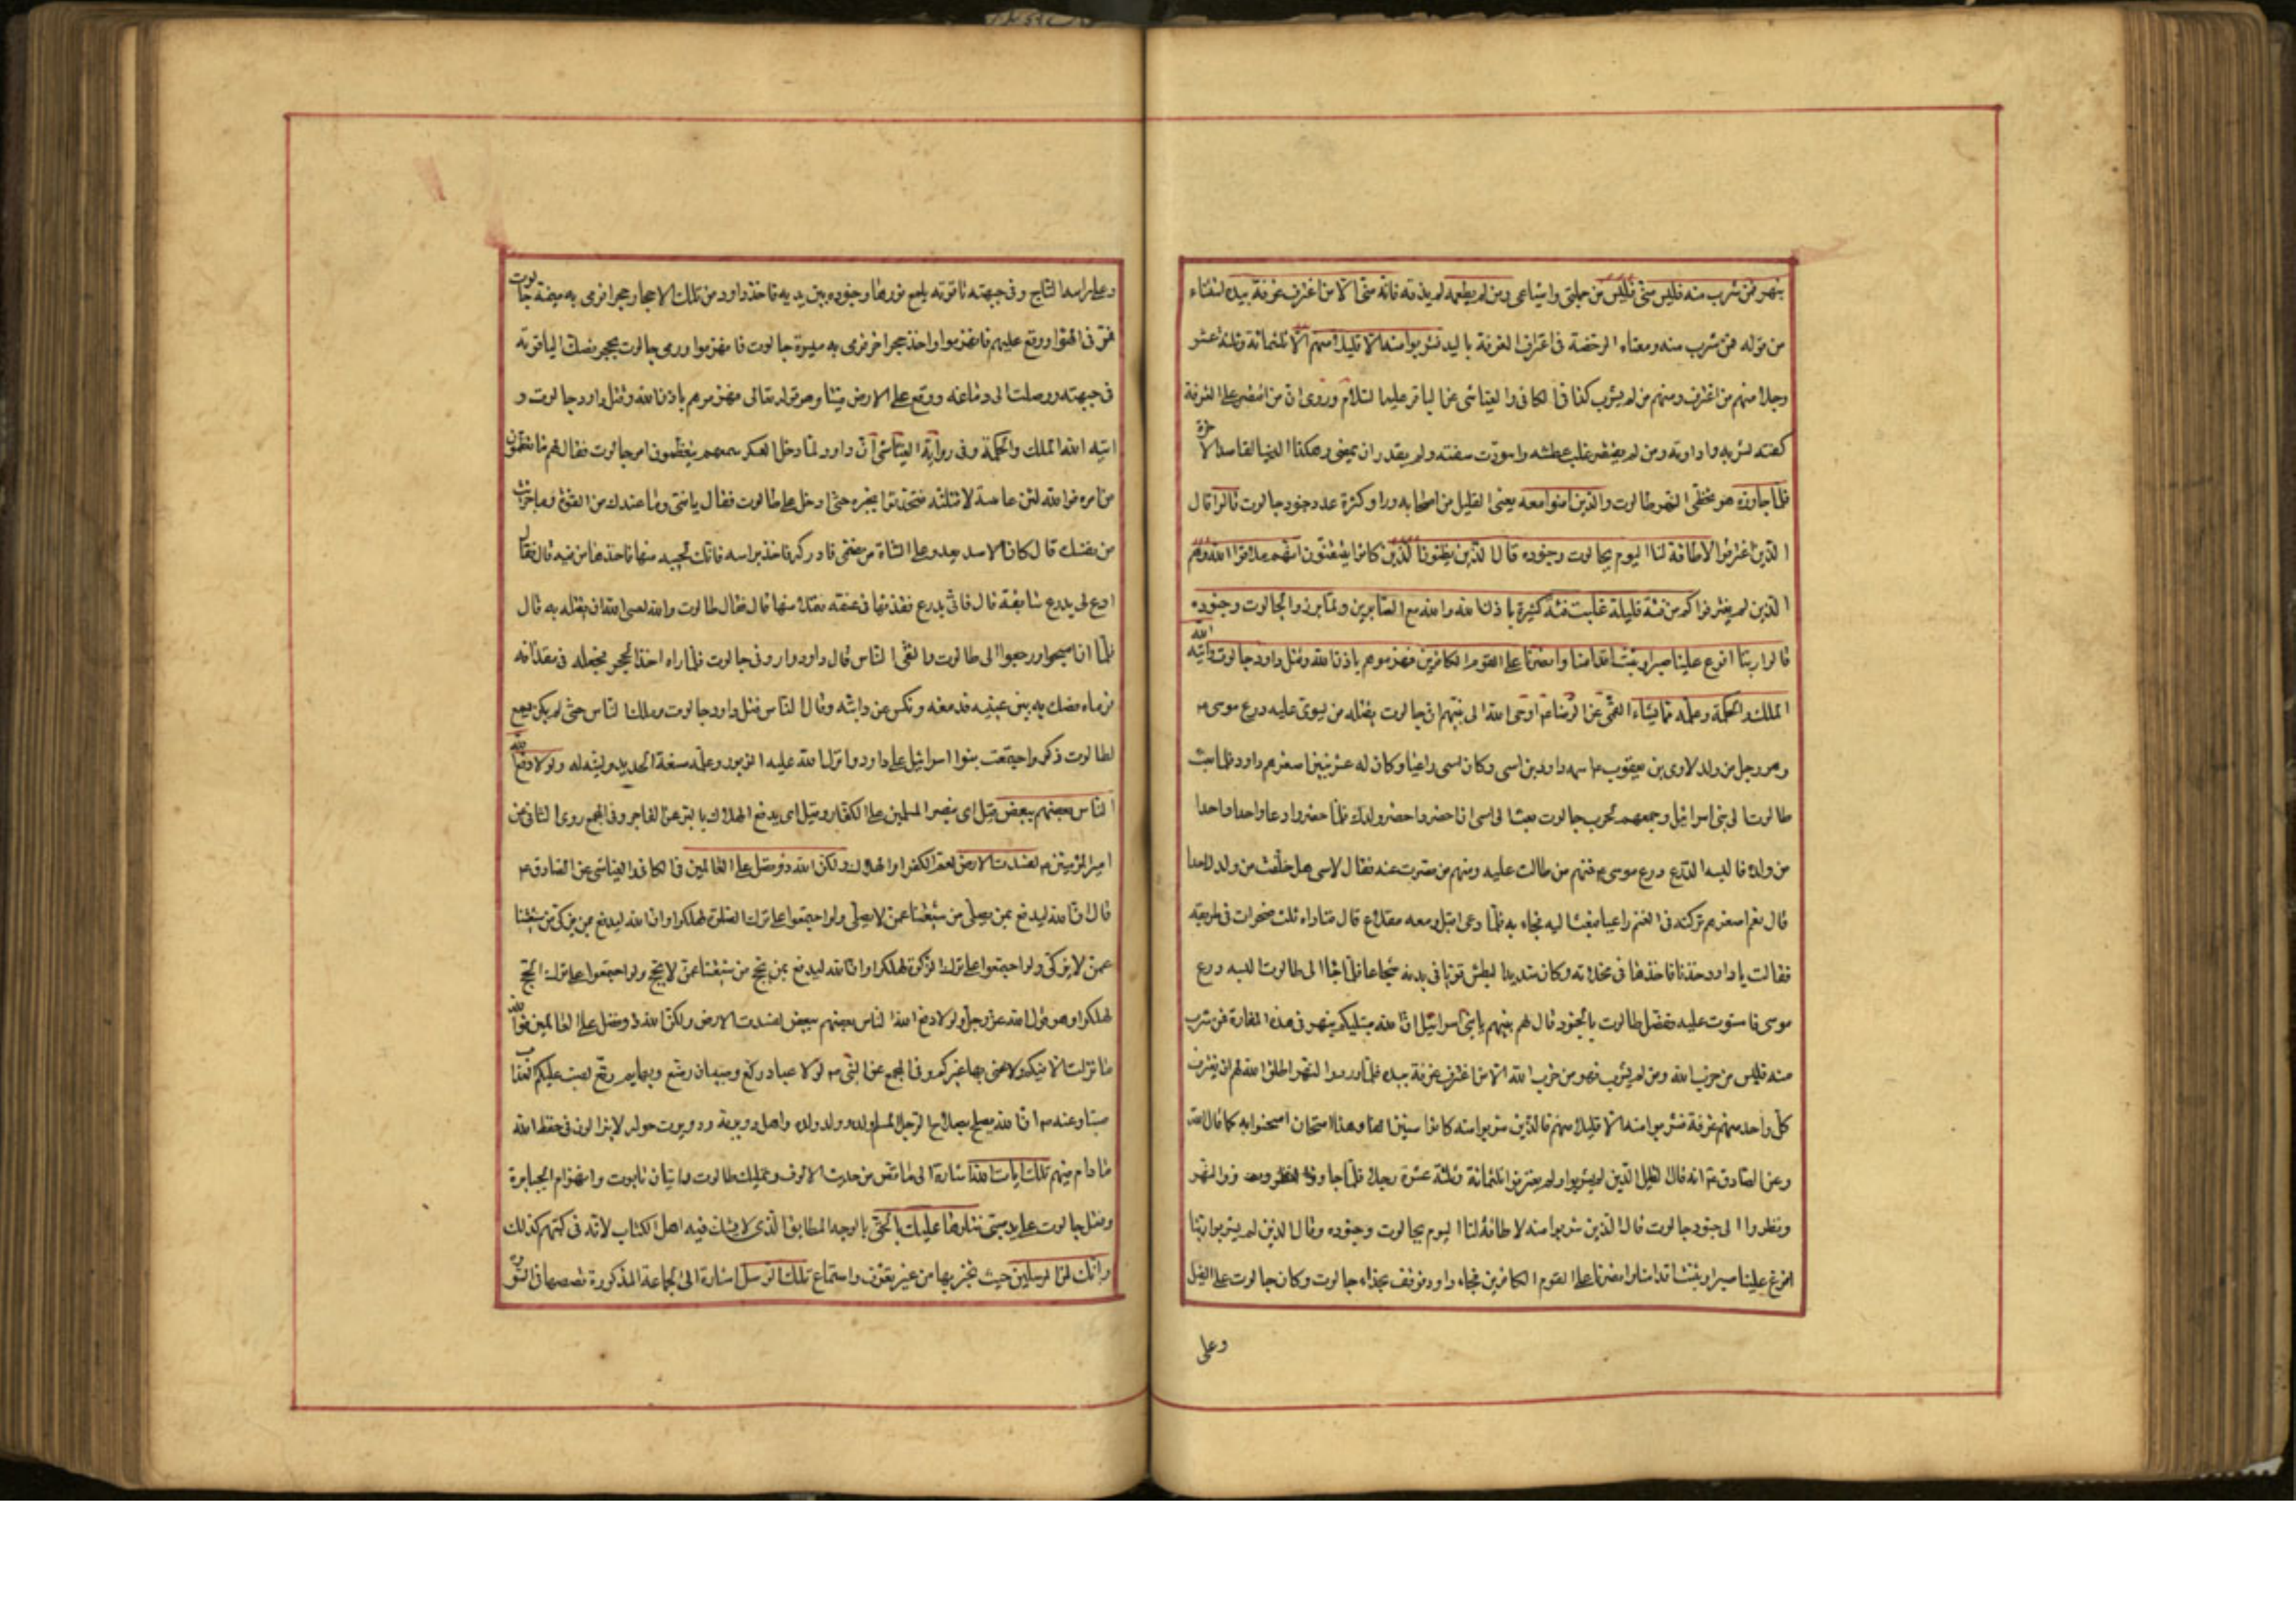 بنهر فمن شرب منه فليس مني فليس من جملتي واشياعي ومن لم يطعمه لم يذقه فانه مني الا من اغترف غرفة بيده استثناء
من قوله فمن شرب منه ومعناه الرخصة في اغتراف الغرفة باليد فشربوا منه الا قليلا منهم الا ثلثمائة وثلثة عشر
رجلا منهم من اغترف ومنهم من لم يشرب كذا في الكافي والعياشي عن الباقر عليه السلام وروى ان من اقتصر على الغرفة
كفته لشربه واداوته ومن لم يقتصر غلب عطشه واسودت شفته ولم يقدر ان يمضي وهكذا الدنيا لقاصد الاخرة
فلما جاوزه هو تخطى النهر طالوت والذين امنوا معه يعني القليل من اصحابه وراوا كثرة عدد جنود جالوت قالوا قال
الذين اغترفوا لا طاقة لنا اليوم بجالوت وجنوده قال الذين يظنون الذين كانوا يتيقنون انهم ملاقوا الله وهم
الذين لم يغترفوا كم من فئة قليلة غلبت فئة كثيرة باذن الله والله مع الصابرين ولما برزوا لجالوت وجنوده
قالوا ربنا افرغ علينا صبرا وثبت اقدامنا وانصرنا على القوم الكافرين فهزموهم باذن الله وقتل داود جالوت واتيه الله
الملك والحكمة وعلمه مما يشاء القمي عن الرضا ع اوحى الله الى نبيهم ان جالوت يقتله من يسوى عليه درع موسى ع
وهو رجل من ولد لاوى بن يعقوب ع اسمه داود بن اسى وكان اسى راعيا وكان له عشر بنين اصغرهم داود فلما بعث
طالوت الى بنى اسرائيل وجمعهم لحرب جالوت بعث الى اسى ان احضر واحضر ولدك فلما حضروا دعا واحدا واحدا
من ولده فالبسه الدرع درع موسى ع فمنهم من طالت عليه ومنهم من قصرت عنه فقال لاسى هل خلفت من ولدك احدا
قال نعم اصغرهم تركته في الغنم راعيا فبعث اليه فجاء به فلما دعى اقبل ومعه مقلاع قال فناداه ثلث صخرات في طريقه
فقالت يا داود خذنا فاخذها في مخلاته وكان شديد البطش قويا في بدنه شجاعا فلما جاء الى طالوت البسه درع
موسى فاستوت عليه ففصل طالوت بالجنود قال لهم نبيهم يا بنى اسرائيل ان الله مبتليكم بنهر في هذه المفازة فمن شرب
منه فليس من حزب الله ومن لم يشرب فهو من حزب الله الا من اغترف غرفة بيده فلما وردوا النهر اطلق الله لهم ان يغترف
كل واحد منهم غرفة فشربوا منه الا قليلا منهم فالذين شربوا منه كانوا ستين الفا وهذا امتحان امتحنوا به كما قال الله
وعن الصادق ع انه قال القليل الذين لم يشربوا ولم يغترفوا ثلثمائة وثلثة عشرة رجلا فلما جاوزوا النهر
ونظروا الى جنود جالوت قال الذين شربوا منه لا طاقة لنا اليوم بجالوت وجنوده وقال الذين لم يشربوا ربنا
افرغ علينا صبرا وثبت اقدامنا وانصرنا على القوم الكافرين فجاء داود فوقف بحذاء جالوت وكان جالوت على الفيل
وعلى
وعلى راسه التاج وفي جبهته ياقوته يلمع نورها وجنوده بين يديه فاخذ داود من تلك الاحجار حجرا فرمى به ميمنة جالوت
فمر في الهواء ووقع عليهم فانهزموا واخذ حجرا اخر فرمى به ميسرة جالوت فانهزموا ورمى جالوت بحجر فصك الياقوتة
في جبهته ووصلت الى دماغه ووقع على الارض ميتا وهو قوله تعالى فهزموهم باذن الله وقتل داود جالوت و
اتيه الله الملك والحكمة وفي رواية العياشي ان داود لما دخل العسكر سمعهم يتعظمون امر جالوت فقال لهم ما تعظمون
من امره فوالله لئن عاينته لاقتلنه فتحدثوا بخبره حتى ادخل على طالوت فقال يا فتى وما عندك من القوة وما جربت
من نفسك قال كان الاسد يعدو على الشاة من غنمي فادركه فاخذ براسه فافك لحييه منها فاخذها من فيه قال فقال
ادع لي بدرع سابغة قال فاتى بدرع فقذفها في عنقه فتملا منها قال فقال طالوت والله لعسى الله ان يقتله به قال
فلما ان اصبحوا ورجعوا الى طالوت والتقى الناس قال داود اروني جالوت فلما راه اخذ الحجر فجعله في مقذافه
فرماه فصك به بين عينيه فدمغه ونكس عن دابته وقال الناس قتل داود جالوت وملك الناس حتى لم يكن يسمع
لطالوت ذكر واجتمعت بنوا اسرائيل على داود وانزل الله عليه الزبور وعلمه صنعة الحديد ولينه له ولولا دفع الله
الناس بعضهم ببعض قيل اى بنصر المسلمين على الكفار وقيل اى يدفع الهلاك بالبر عن الفاجر وفي المجمع روى الثاني عن
امير المؤمنين ع لفسدت الارض لعم الكفر والهلاك ولكن الله ذو فضل على العالمين في الكافي والعياشي عن الصادق ع
قال ان الله ليدفع بمن يصلي من شيعتنا عمن لا يصلي ولو اجتمعوا على ترك الصلوة لهلكوا وان الله ليدفع بمن يزكي من شيعتنا
عمن لا يزكي ولو اجتمعوا على ترك الزكوة لهلكوا وان الله ليدفع بمن يحج من شيعتنا عمن لا يحج ولو اجتمعوا على ترك الحج
لهلكوا وهو قول الله عز وجل ولولا دفع الله الناس بعضهم ببعض لفسدت الارض ولكن الله ذو فضل على العالمين فوالله
ما نزلت الا فيكم ولا عنى بها غيركم وفي المجمع عن النبي ص لولا عباد ركع وصبيان رضع وبهايم رتع لصب عليكم العذاب
صبا وعنه ص ان الله يصلح بصلاح الرجل المسلم ولده وولد ولده واهل دويرته ودويرات حوله لا يزالون في حفظ الله
ما دام فيهم تلك ايات الله اشارة الى ما قص من حديث الالوف وتمليك طالوت واتيان تابوت وانهزام الجبابرة
وقتل جالوت على يد صبي نتلوها عليك بالحق بالوجه المطابق الذى لا يشك فيه اهل الكتاب لانه في كتبهم كذلك
وانك لمن المرسلين حيث تخبر بها من غير تعرف واستماع تلك الرسل اشارة الى الجماعة المذكورة قصصها في السورة